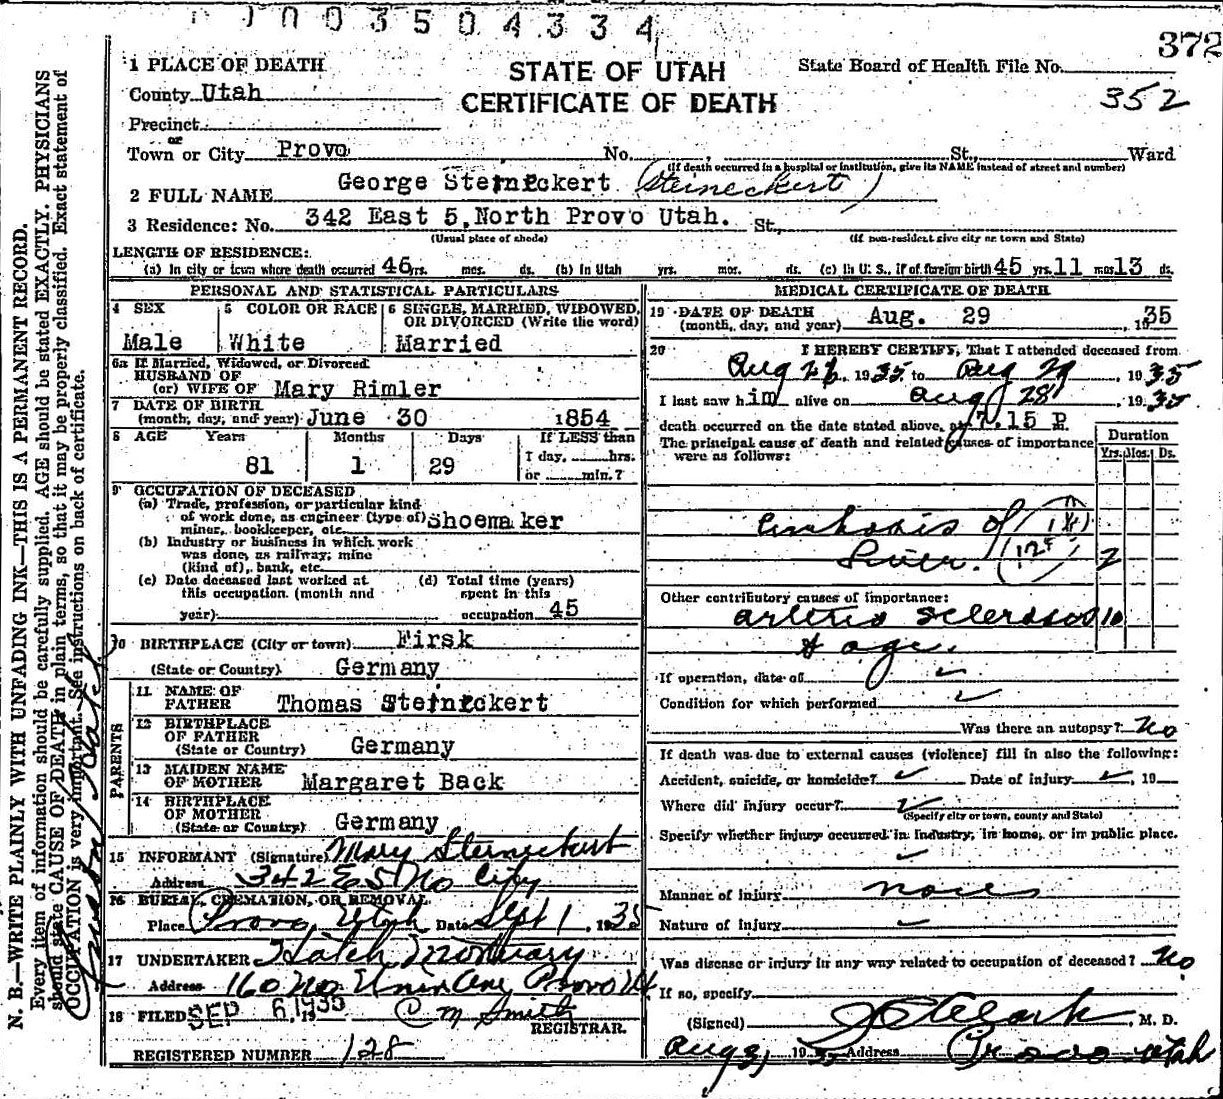 0003504334
372
1 PLACE OF DEATH
STATE OF UTAH
CERTIFICATE OF DEATH
State Board of Health File No.
352
County Utah
Precinct
or
Town or City Provo No. , St., Ward
(If death occurred in a hospital or institution, give its NAME instead of street and number)
2 FULL NAME George Steineckert (Steineckert)
3 Residence: No. 342 East 5,North Provo Utah. St.,
(Usual place of abode) (If non-resident give city or town and State)
LENGTH OF RESIDENCE:
(a) In city or town where death occurred 46 yrs. mos. ds. (b) In Utah yrs. mos. ds. (c) In U. S., if of foreign birth 45 yrs. 11 mos 13 ds.
PERSONAL AND STATISTICAL PARTICULARS
4 SEX
Male
5 COLOR OR RACE
White
6 SINGLE, MARRIED, WIDOWED, OR DIVORCED (Write the word)
Married
6a If Married, Widowed, or Divorced
HUSBAND OF
(or) WIFE OF Mary Rimler
7 DATE OF BIRTH
(month, day, and year) June 30 1854
8 AGE Years Months Days If LESS than
81 1 29 1 day, hrs.
or min.?
9 OCCUPATION OF DECEASED
(a) Trade, profession, or particular kind
of work done, as engineer (type of)
miner, bookkeeper, etc. Shoemaker
(b) Industry or business in which work
was done, as railway; mine
(kind of), bank, etc.
(c) Date deceased last worked at
this occupation. (month and
year)
(d) Total time (years)
spent in this
occupation 45
10 BIRTHPLACE (City or town) Firsk
(State or Country) Germany
PARENTS
11 NAME OF
FATHER Thomas Steineckert
12 BIRTHPLACE
OF FATHER
(State or Country) Germany
13 MAIDEN NAME
OF MOTHER Margaret Back
14 BIRTHPLACE
OF MOTHER
(State or Country) Germany
15 INFORMANT (Signature) Mary Steineckert
Address 342 E 5 No City
16 BURIAL, CREMATION, OR REMOVAL
Place Provo, Utah Date Sept 1, 1935
17 UNDERTAKER Hatch Mortuary
Address 160 No Univ Ave, Provo Ut
18 FILED SEP 6, 1935 C M Smith
REGISTRAR.
REGISTERED NUMBER 128
MEDICAL CERTIFICATE OF DEATH
19 DATE OF DEATH
(month, day, and year) Aug. 29 , 1935
20 I HEREBY CERTIFY, That I attended deceased from
Aug 26, 1935 to Aug 29, 1935
I last saw him alive on Aug 28 1935
death occurred on the date stated above, at 7.15 P.
The principal cause of death and related causes of importance
were as follows:
Duration
Yrs. Mos. Ds.
of
Liver. 2
Other contributory causes of importance:
Arterio Sclerosis 10
+ age.
If operation, date of
Condition for which performed
Was there an autopsy? No
If death was due to external causes (violence) fill in also the following:
Accident, suicide, or homicide? Date of injury , 19
Where did injury occur?
(Specify city or town, county and State)
Specify whether injury occurred in industry, in home, or in public place.
Manner of injury
Nature of injury
Was disease or injury in any way related to occupation of deceased? No
If so, specify
(Signed) Clark , M. D.
Aug 31, 19 Address Provo Utah
N. B.—WRITE PLAINLY WITH UNFADING INK—THIS IS A PERMANENT RECORD.
Every item of information should be carefully supplied. AGE should be stated EXACTLY. PHYSICIANS
should state CAUSE OF DEATH in plain terms, so that it may be properly classified. Exact statement of
OCCUPATION is very important. See instructions on back of certificate.